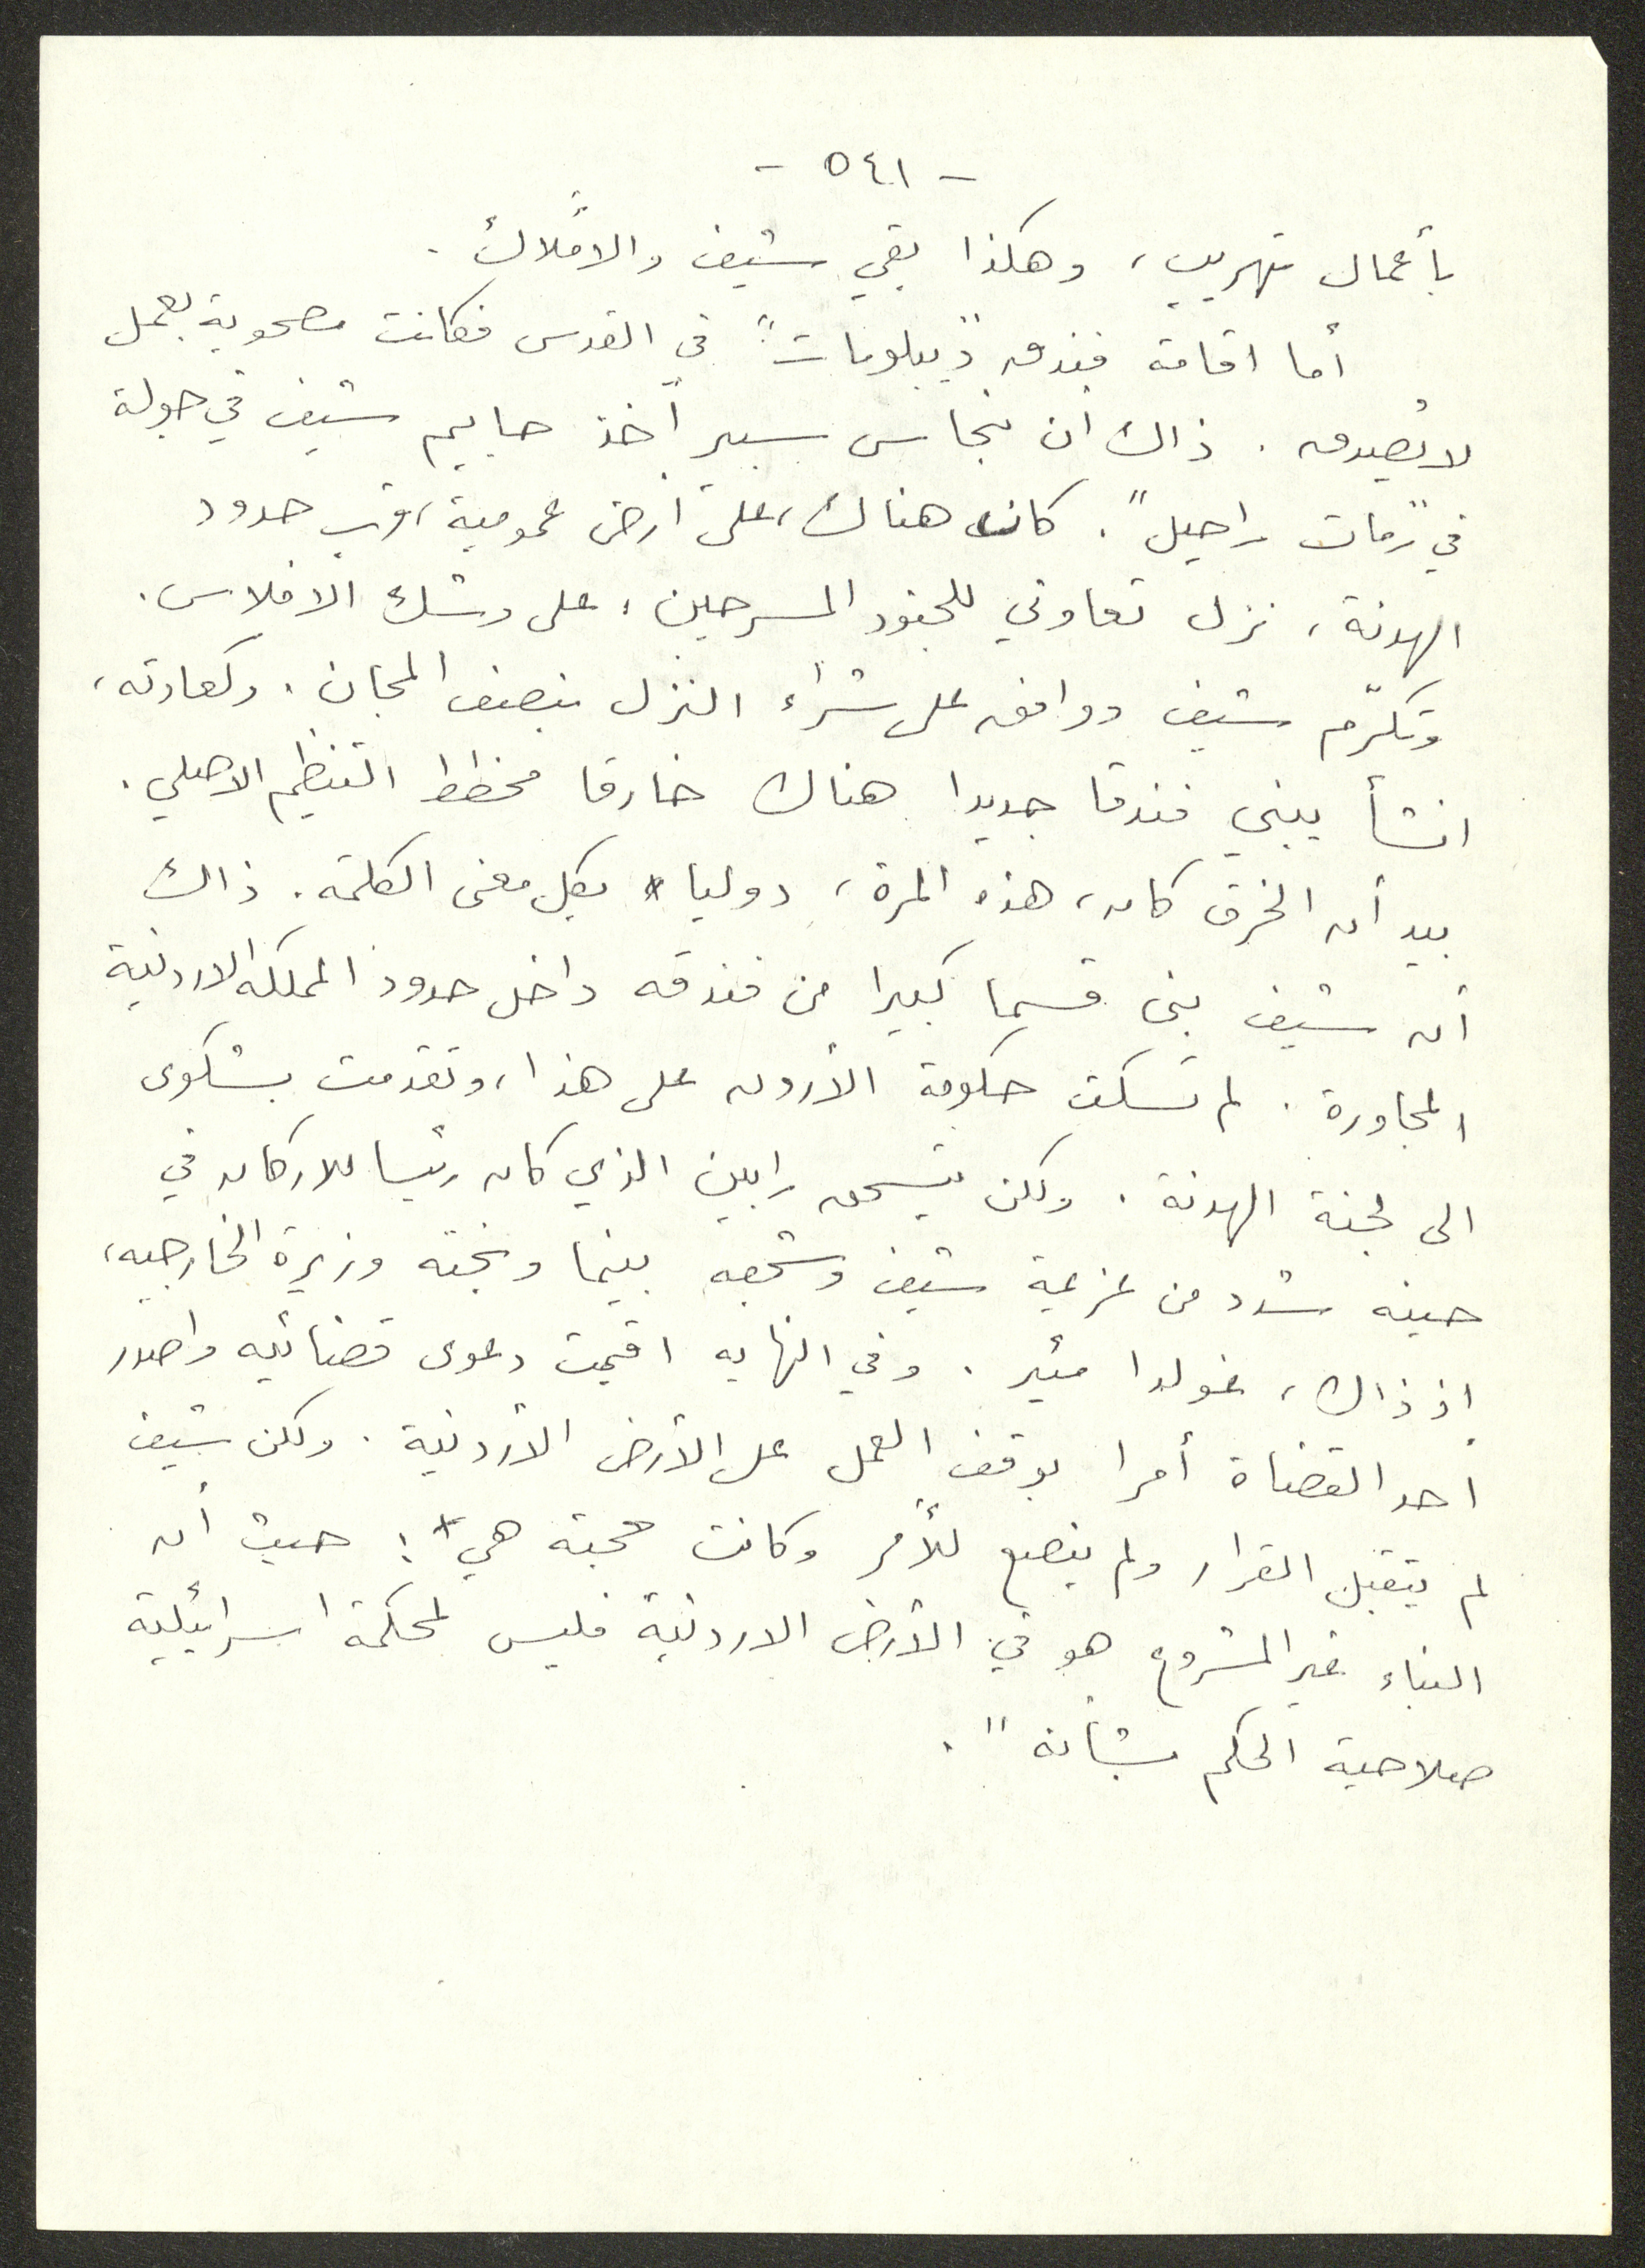 - ٥٤١ -
بأعمال تهريب، وهكذا بقي شيف والأملاك.
أما اقامة فندق "ديبلومات" في القدس فكانت مصحوبة بعمل
لا يُصدق. ذاك ان بنحاس سبير أخذ حاييم شيف في جولة
في "رمات راحيل". كان هناك، على أرض عمومية، قرب حدود
الهدنة، نزل تعاوني للجنود المسرحين، على وشك الافلاس.
وتكرّم شيف ووافق على شراء النزل بنصف المجان. وكعادته،
انشأ يبني فندقا جديدا هناك خارقا مخطط التنظيم الاصلي.
بيد أن الخرق كان، هذه المرة، دوليا بكل معنى الكلمة. ذاك
أن شيف بنى قسما كبيرا من فندقه داخل حدود المملكة الاردنية
المجاورة. لم تسكت حكومة الأردن على هذا، وتقدمت بشكوى
الى لجنة الهدنة. ولكن يتسحق رابين الذي كان رئيسا للاركان في
حينه شدد من عزيمة شيف وشجعه بينما وبخته وزيرة الخارجيه،
اذ ذاك، غولدا مئير. وفي النهايه اقيمت دعوى قضائيه واصدر
أحد القضاة أمرا بوقف العمل على الأرض الأردنية. ولكن شيف
لم يتقبل القرار ولم ينصع للأمر وكانت حجته هي: حيث أن
البناء غير المشروع هو في الأرض الاردنية فليس لمحكمة اسرائيلية
صلاحية الحكم بشأنه".